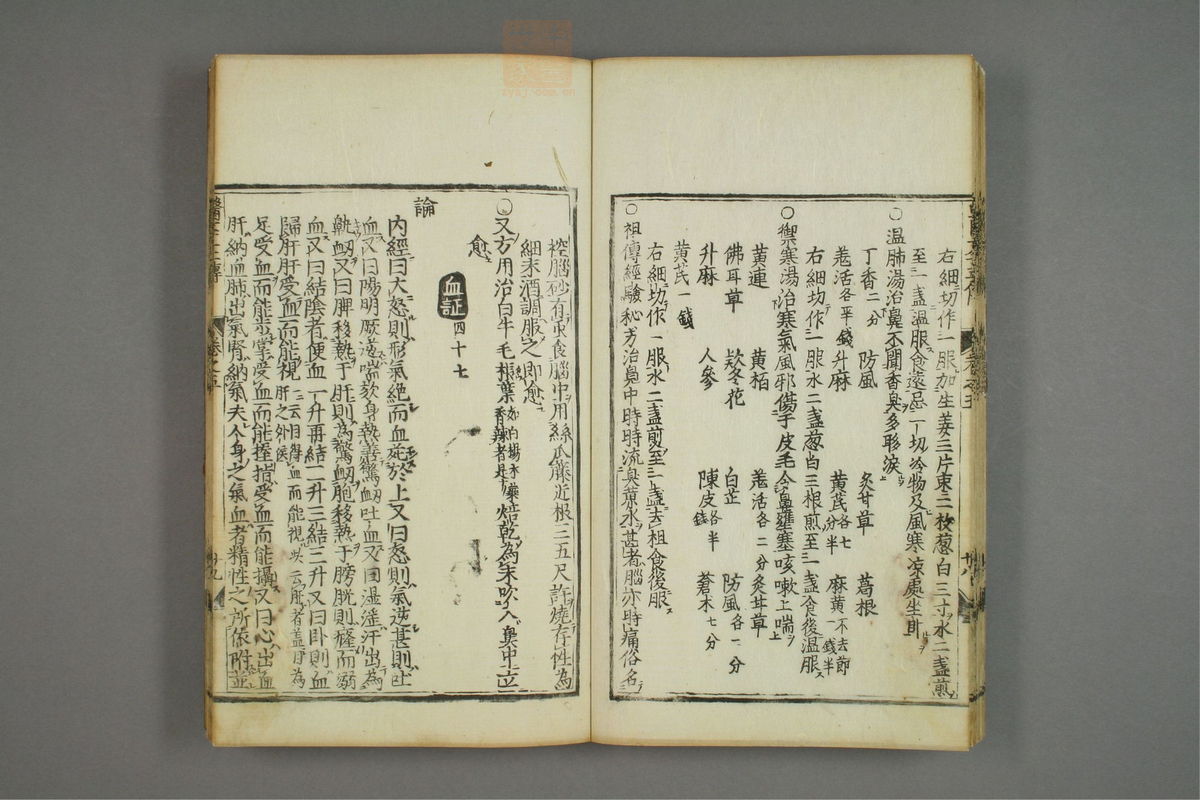 右細切作一服加生姜三片棗三枚葱白三寸水二盞煎
至一盞温服食遠忌一切冷物及風寒凉處坐卧
○温肺湯治鼻不聞香臭多眵淚
丁香二分 防風 炙甘草 葛根
羗活各半錢 升麻 黄芪各七分半 麻黄不去節一錢半
右細切作一服水二盞葱白三根煎至一盞食後温服
○禦寒湯治寒氣風邪傷于皮毛令鼻壅塞咳嗽上喘
黄連 黄栢 羗活各二分 炙甘草
佛耳草 欵冬花 白芷 防風各一分
升麻 人參 陳皮各半錢 蒼术七分
黄芪一錢
右細切作一服水二盞煎至一盞去粗食後服
○祖傳經驗秘方治鼻中時時流臭黄水甚者腦亦時痛俗名
控腦砂有虫食腦中用絲瓜藤近根三五尺許燒存性為
細末酒調服之即愈
○又方用治白牛毛
焙乾為末吹入鼻中立
愈
血証四十七
論
内經曰大怒則形氣絶而血菀於上又曰怒則氣逆甚則嘔
血又曰陽明厥逆喘欬身熱善驚衂吐血又曰濕淫汗出為
鼽衂又曰脾移熱于肝則為驚衂胞移熱于膀胱則癃而溺
血又曰結陰者便血一升再結二升三結三升又曰卧則血
歸肝肝受血而能視肝之外候一云目得血而能視以云肝者盖目為
足受血而能步掌受血而能握指受血而能攝又曰心出血
肝納血肺出氣腎納氣夫人身之氣血者精性之所依附並